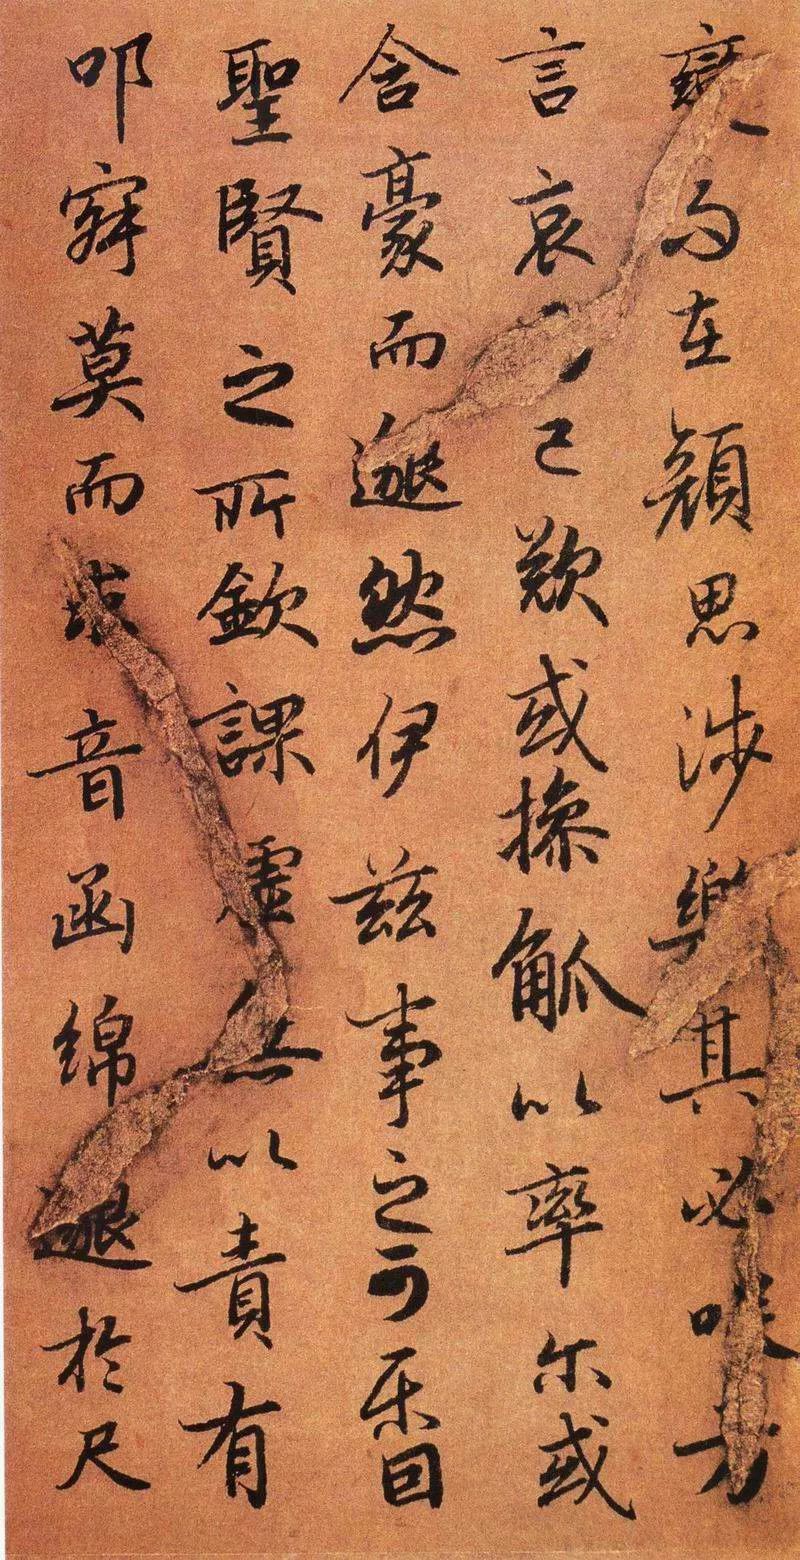 變而在顏思涉樂其必咲方
言哀而已歎或操觚以率尔或
含豪而邈然伊茲事之可乐固
聖賢之所欽課虛無以責有
叩寂莫而求音函綿邈於尺